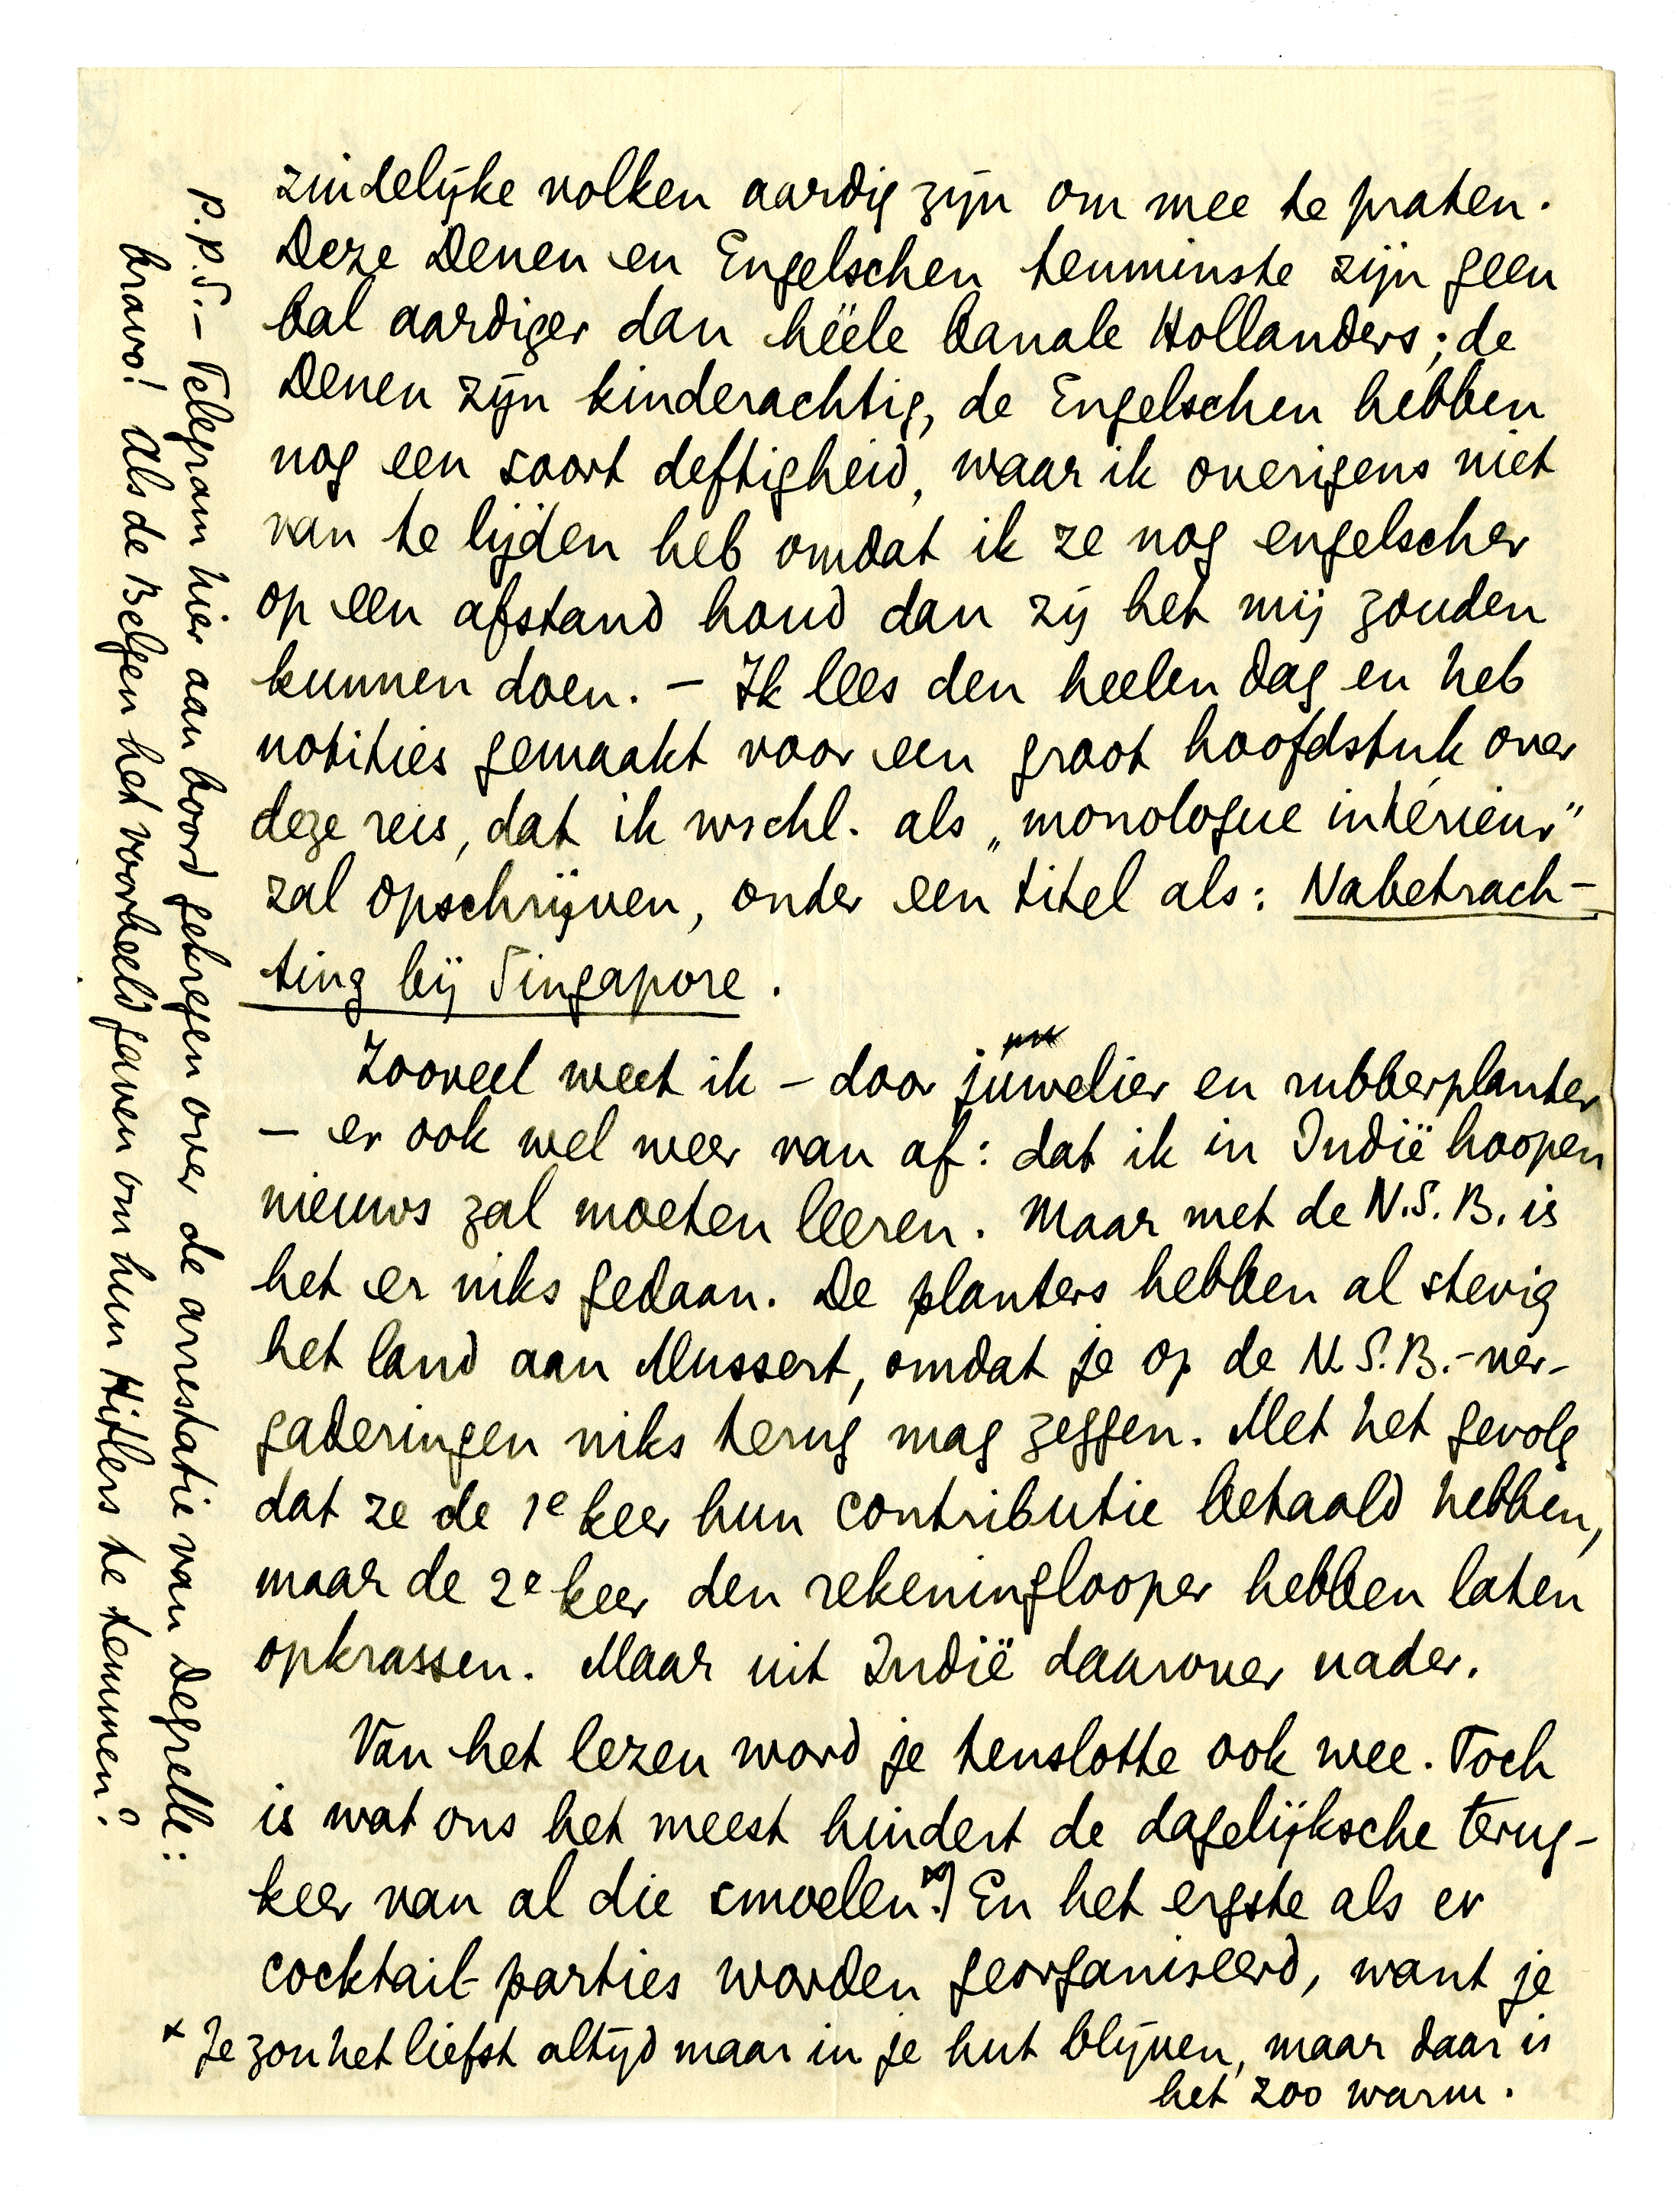 zindelijke volken aardig zijn om mee te praten.
Deze Denen en Engelschen tenminste zijn geen
bal aardiger dan héële banale Hollanders; de
Denen zijn kinderachtig, de Engelschen hebben
nog een soort deftigheid, waar ik overigens niet
van te lijden heb omdat ik ze nog engelscher
op een afstand houd dan zij het mij zouden
kunnen doen. – Ik lees den heelen dag en heb
notities gemaakt voor een groot hoofdstuk over
deze reis, dat ik wschl. als „monologue intérieur"
zal opschrijven, onder een titel als: Nabetrach-
ting bij Singapore.
Zooveel weet ik – door juwelier en rubberplanter
– er ook wel weer van af: dat ik in Indië hoopen
nieuws zal moeten leeren. Maar met de N.S.B. is
het er niks gedaan. De planters hebben al stevig
het land aan Mussert, omdat je op de N.S.B.-ver-
gaderingen niks terug mag zeggen. Met het gevolg
dat ze de 1e keer hun contributie betaald hebben,
maar de 2e keer den rekeninglooper hebben laten
opkrassen. Maar uit Indië daarover nader.
Van het lezen word je tenslotte ook wee. Toch
is wat ons het meest hindert de dagelijksche terug-
keer van al die smoelen.*) En het ergste als er
cocktail-parties worden georganiseerd, want je
* Je zou het liefst altijd maar in je hut blijven, maar daar is
het zoo warm.
P.P.S. – Telegram hier aan boord gekregen over de arrestatie van Degrelle:
bravo! Als de Belgen het voorbeeld gaven om hun Hitlers te temmen?